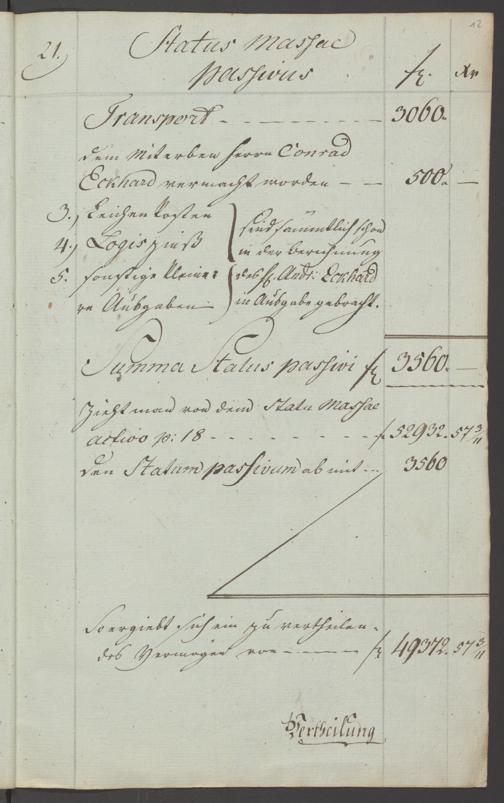 12
21.) Status Massae
passivus fl. Xr
Transport - - - - - - 3060. -
dem Miterben Herrn Conrad
Eckhard vermacht worden - - 500. -
3.) Leichenkosten
4.) Logiszinß
5. sonstige kleine-
re Ausgaben
sind sämmtlich schon
in der Berechnung
des H. Andr: Eckhard
in Ausgabe gebracht.
Summa Status passivi fl 3560. -
Zieht man von dem Statu Massae
activo p: 18 - - - - - - f. 52932. 57 3/4
den Statum passivum ab mit - - 3560
So ergiebt sich ein zu vertheilen-
des Vermögen von - - - - - fl 49372. 57 3/4
Vertheilung